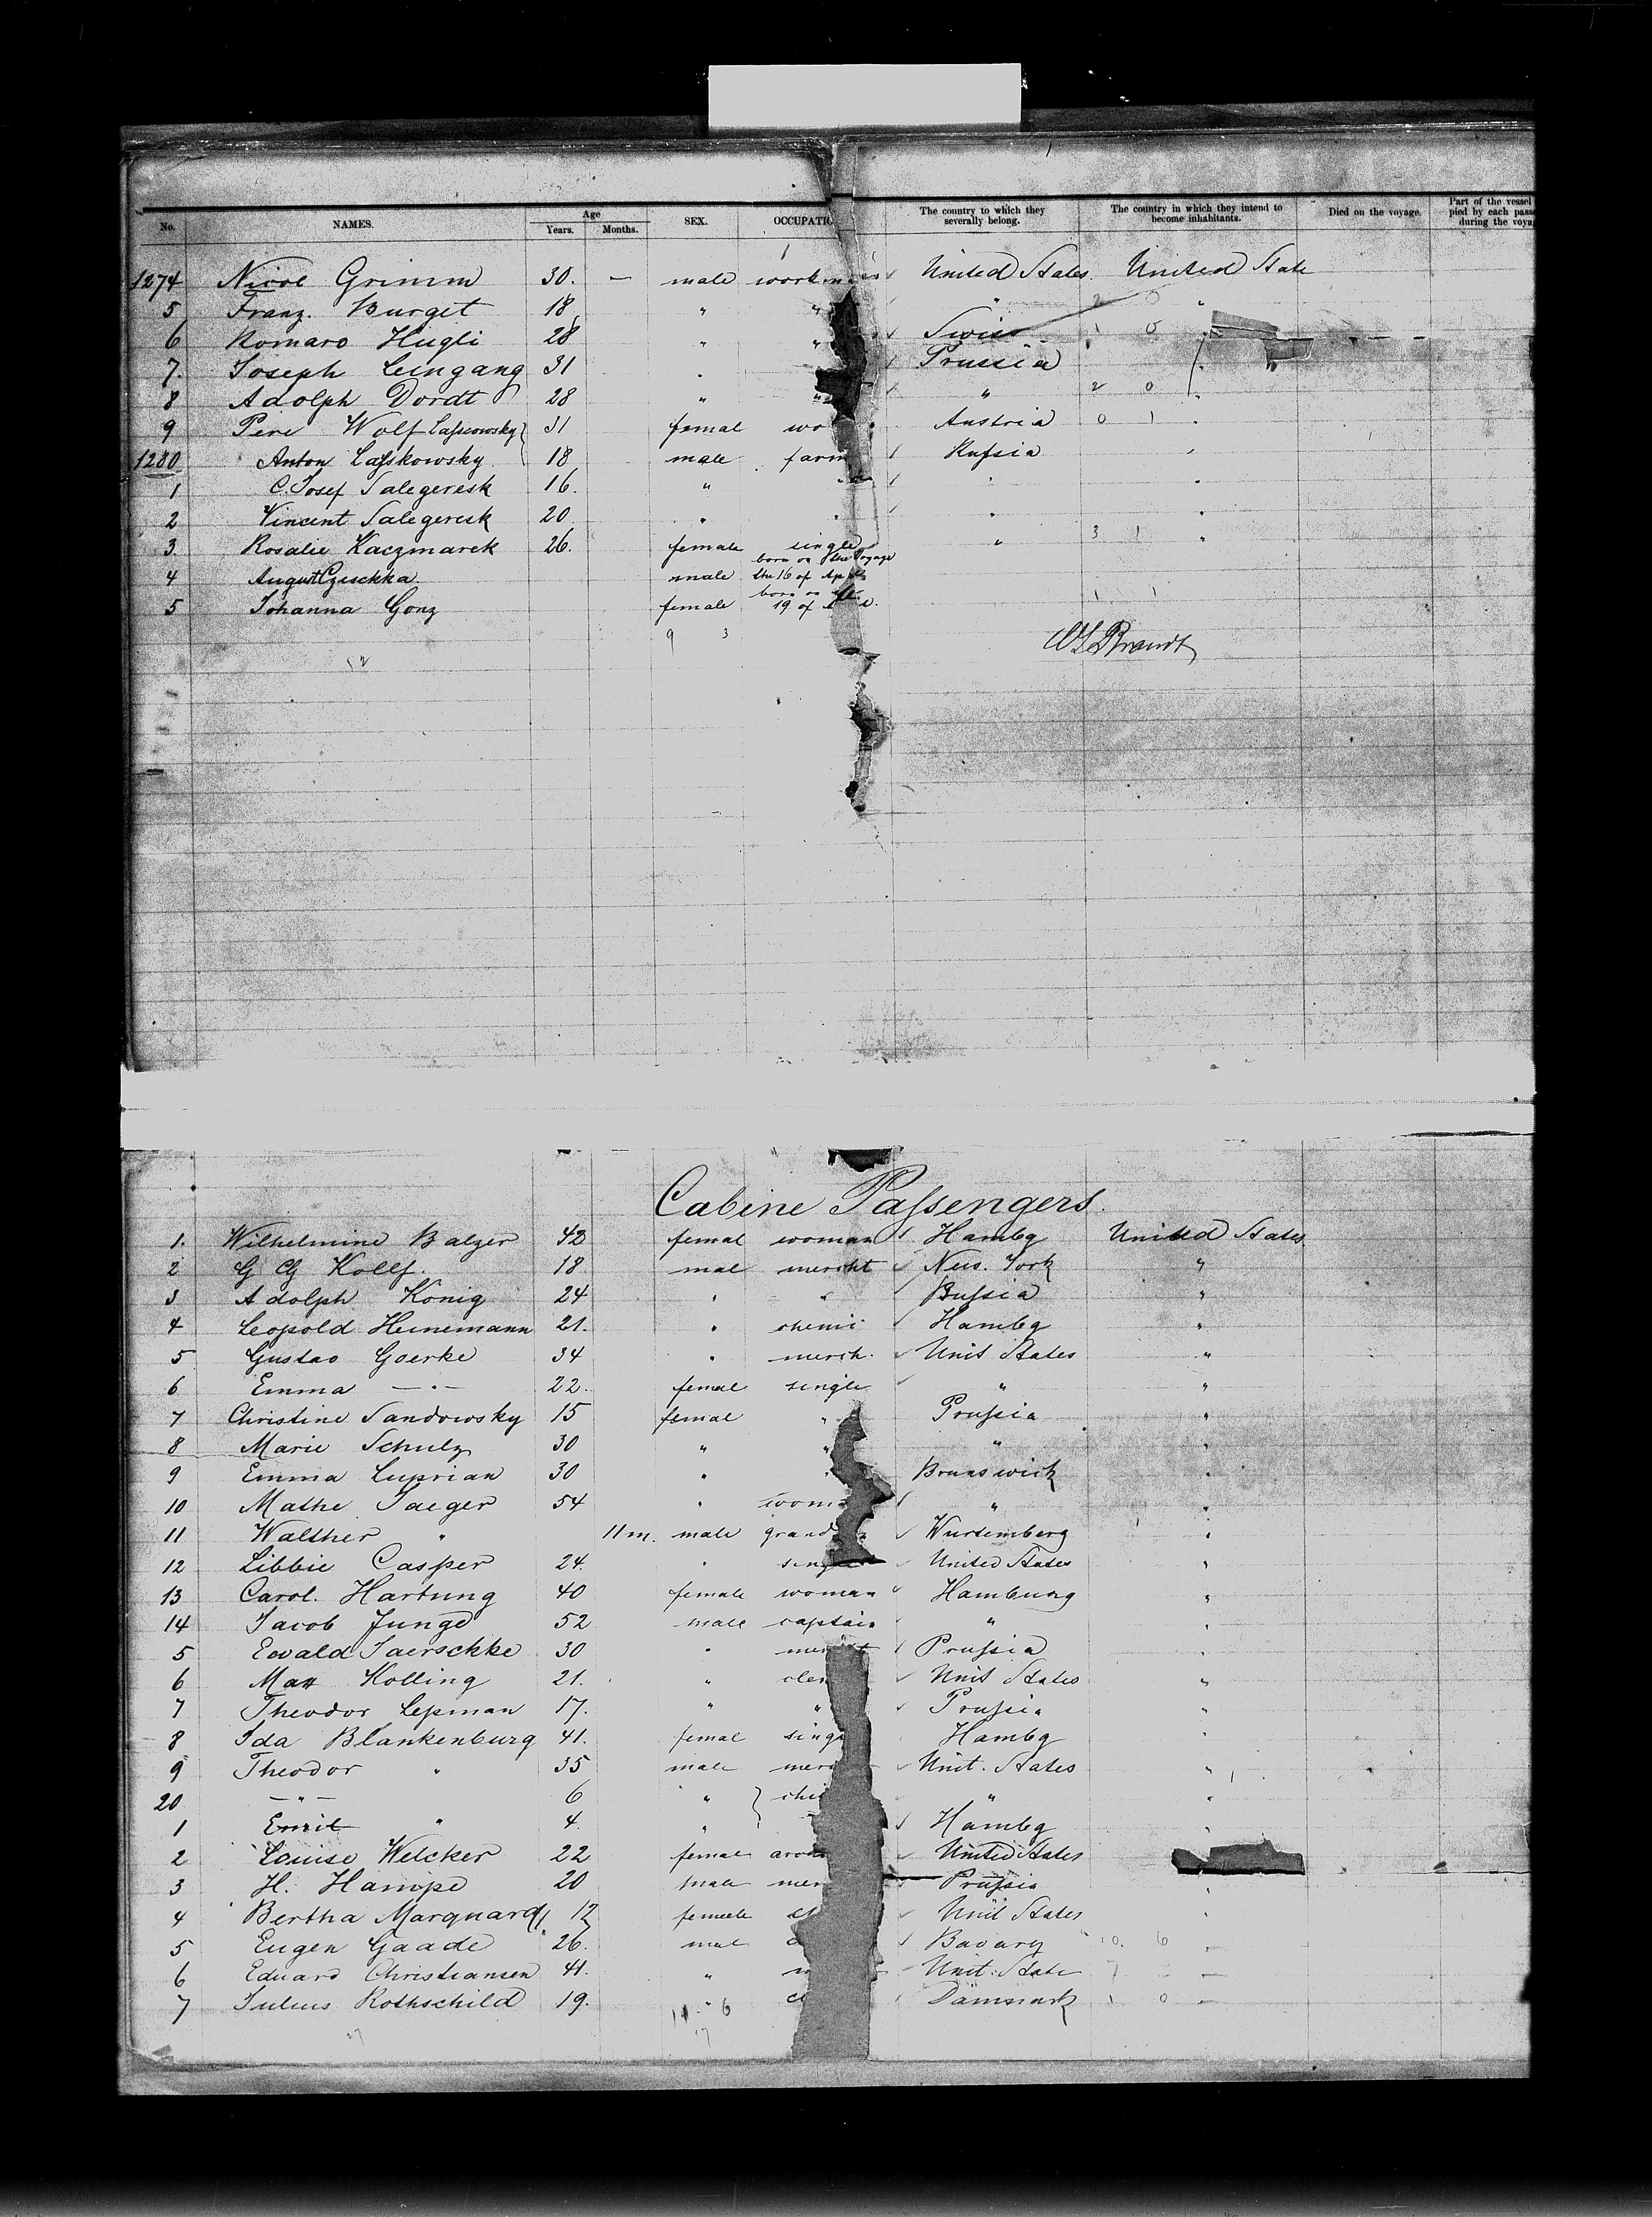 No. NAMES. Age Years. Months. SEX. OCCUPATIO The country to which they severally belong. The country in which they intend to become inhabitants. Died on the voyage. Part of the vessel pied by each pass during the voya
1274 Nicol Grimm 30. — male workm United States. United State
5 Franz. Burget 18 " " " "
6 Romaro Hugli 28 " " Swiss "
7. Joseph Leingang 31 " Prussia "
8 Adolph Dordt 28 " " " 2 0 "
9 Pere Wolf 31 femal wo Austria 0 1 "
1280 Anton Laskowsky 18 male farm Russia "
1 C. Josef Salegeresk 16. " " "
2 Vincent Salegeresk 20 " " " "
3. Rosalie Kaczmarek 26. female single " 3 1 "
4 August Czischka male born on the Voyage the 16 of Ap
5 Johanna Gonz female born on 19 of 1 1
9 3
12
Cabine Passengers.
1. Wilhelmine Balzer 42 femal woman Hambg United States
2 G G Kollf. 18 mal mercht New. York "
3 Adolph König 24 " " Russia "
4 Leopold Heinemann 21. " chemi Hambg "
5 Gustav Goerke 34 " merch. Unit States "
6 Emma — " — 22. femal single " "
7 Christine Sandowsky 15 femal " Prussia "
8 Marie Schulz 30 " " " "
9 Emma Luprian 30 " " Brunswick "
10 Mathe Jaeger 54 " woma " "
11 Walther " 11 m. male grand Wurtemberg "
12 Libbie Casper 24. " sing United States "
13 Carol. Hartung 40 female woman Hamburg "
14 Jacob Junge 52 male captain " "
5 Ewald Jaerschke 30 " mer Prussia "
6 Max Kolling 21. " cler Unit States "
7 Theodor Lepman 17. " " Prussia "
8 Ida Blankenburg 41. femal sing Hambg "
9 Theodor " 35 male mer Unit. States "
20 — " — 6 " chi " "
1 Emil " 4. " Hambg "
2 Louise Welcker 22 femal United States
3 H. Hampe 20 male mer Prussia "
4 Bertha Marquard 12 female Unit States "
5 Eugen Gaade 26. mal Bavary 10. 6 "
6 Eduard Christiansen 41. " Unit. State 7 —
7 Julius Rothschild 19. " Danmark 1 0 —
11 6
27 17